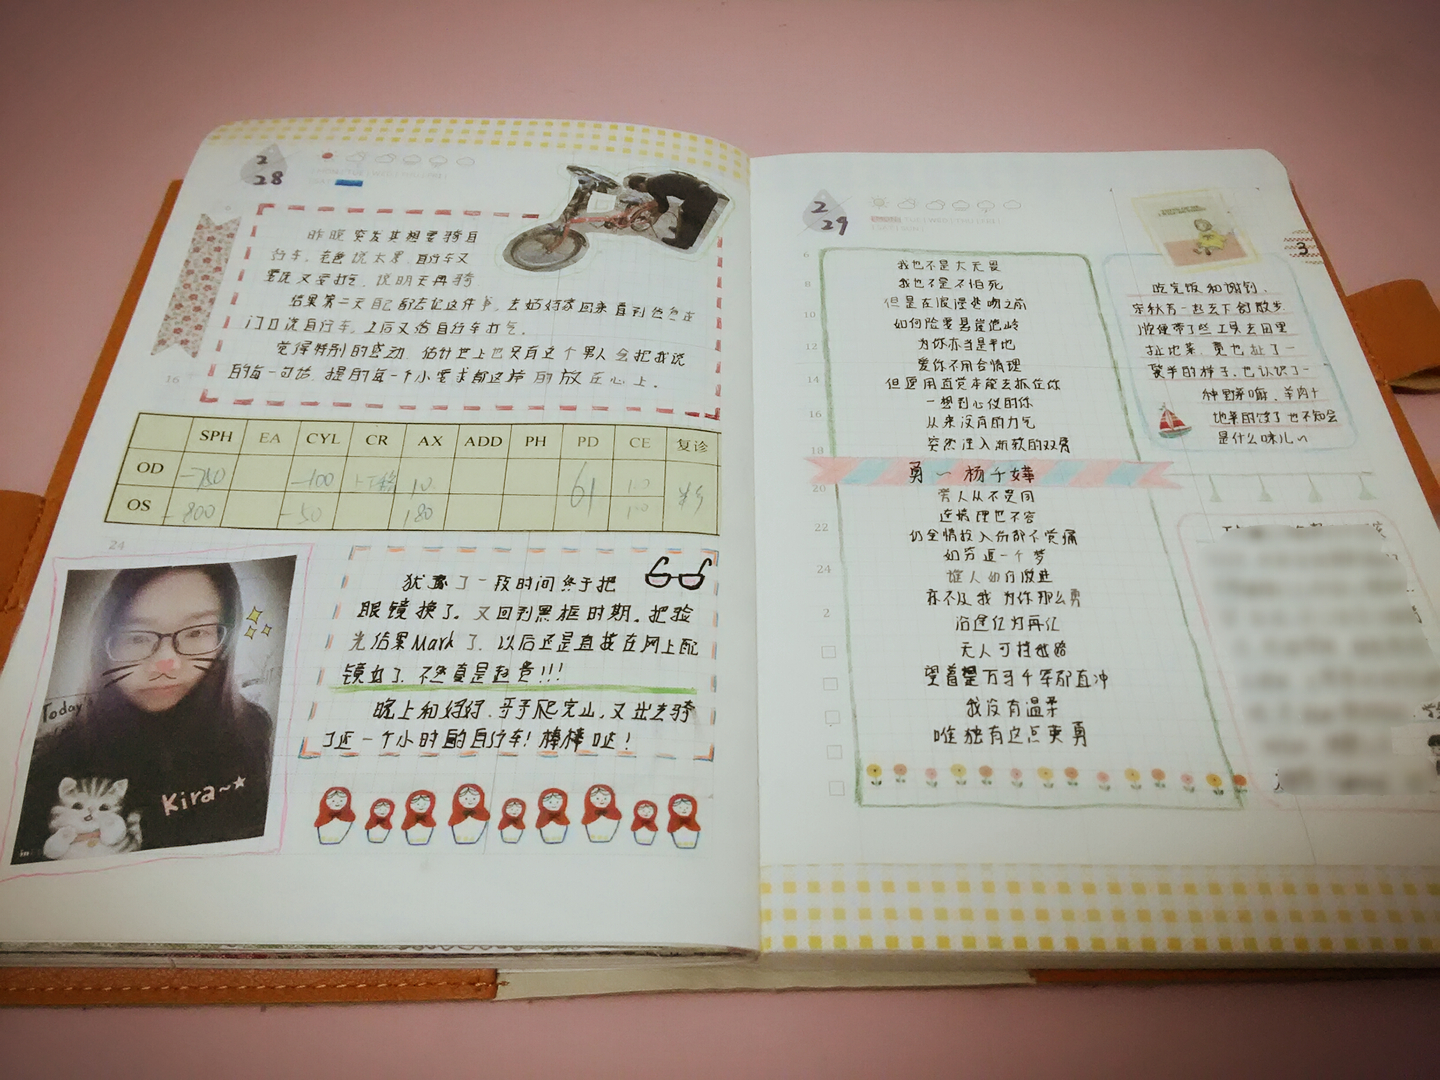 2
28
昨晚突发其想要骑自
行车，爸爸说太黑，自行车又
要洗又要打气，说明天再骑
结果第二天自己都忘记这件事，去奶奶家回来看到爸爸在
门口洗自行车，之后又给自行车打气。
觉得特别的感动，估计世上也只有这个男人会把我说
的每一句话，提的每一个小要求都这样的放在心上。
16
SPH EA CYL CR AX ADD PH PD CE 复诊
OD -750 -100 10 61 1.0
OS -800 -50 180 1.0
24
犹豫了一段时间终于把
眼镜换了。又回到黑框时期。把验
光结果Mark了，以后还是直接在网上配
镜好了，不然真是超贵!!!
晚上和好好、哥哥爬完山，又出去骑
了近一个小时的自行车！棒棒哒！
Today's
Kira~★
in
2
29
6
我也不是大无畏
我也不是不怕死
8
但是在浪漫热吻之前
10
如何险要悬崖绝岭
12
为你亦当是平地
爱你不用合情理
14
但愿用直觉本能去抓住你
一想到心仪的你
16
从来没有的力气
18
突然注入渐软的双臂
勇～杨千嬅
20
旁人从不赞同
连情理也不容
22
仍全情投入伤都不觉痛
如穷追一个梦
24
谁人如何激进
亦不及我为你那么勇
2
沿途红灯再红
无人可挡我路
望着是万马千军都直冲
我没有温柔
唯独有这点英勇
3
吃完饭和谢钊、
宋秋芳一起去下郐散步
顺便带了些工具去田里
扯地菜，蛮也扯了一
袋半的样子，也认识了一
种野菜嘛，羊肉+
地菜的饺子也不知会
是什么味儿~